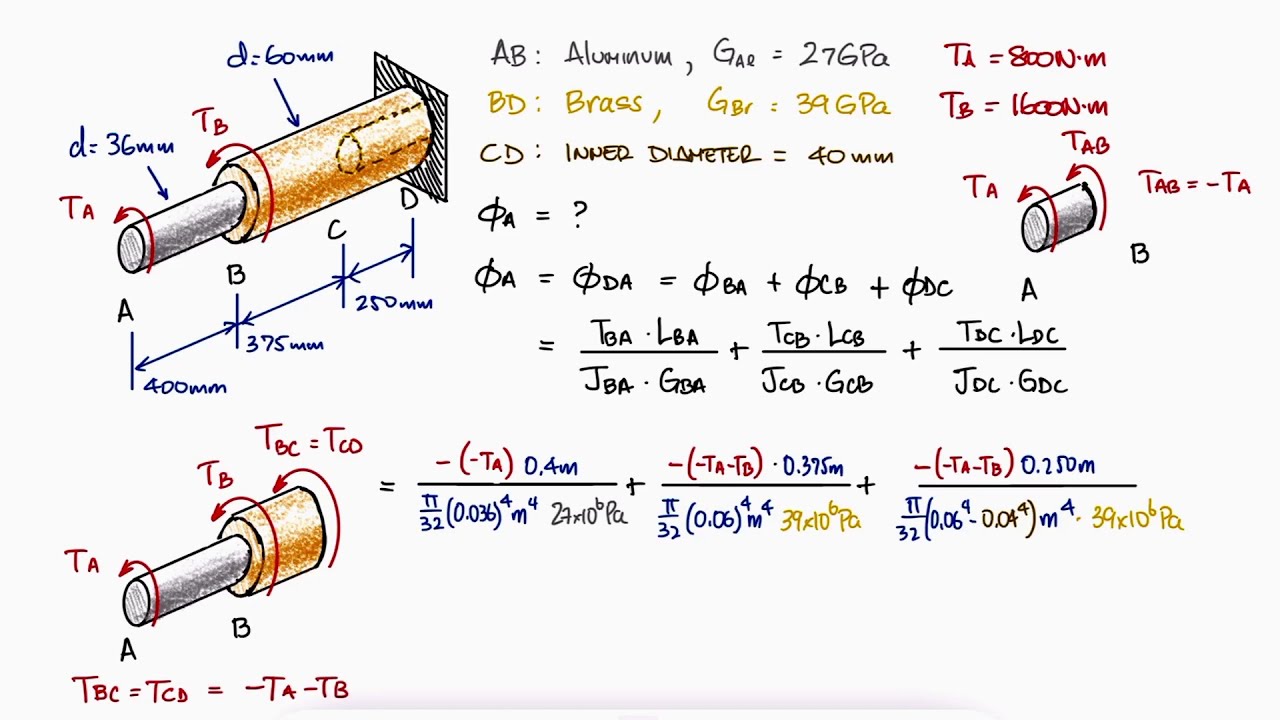 d=60mm
TB
d=36mm
TA
A
B
C
D
400mm
375mm
250mm
AB: Aluminum, GAl = 27GPa
BD: Brass, GBr = 39GPa
CD: INNER DIAMETER = 40mm
TA = 800N·m
TB = 1600N·m
TAB
TA
TAB = -TA
A
B
ϕA = ?
ϕA = ϕDA = ϕBA + ϕCB + ϕDC
= TBA·LBA / JBA·GBA + TCB·LCB / JCB·GCB + TDC·LDC / JDC·GDC
= -(-TA) 0.4m / π/32 (0.036)⁴m⁴ 27x10⁶Pa + -(-TA-TB)·0.375m / π/32 (0.06)⁴m⁴ 39x10⁶Pa + -(-TA-TB) 0.250m / π/32 (0.06⁴-0.04⁴)m⁴· 39x10⁶Pa
TBC = TCD
TB
TA
A
B
TBC = TCD = -TA-TB